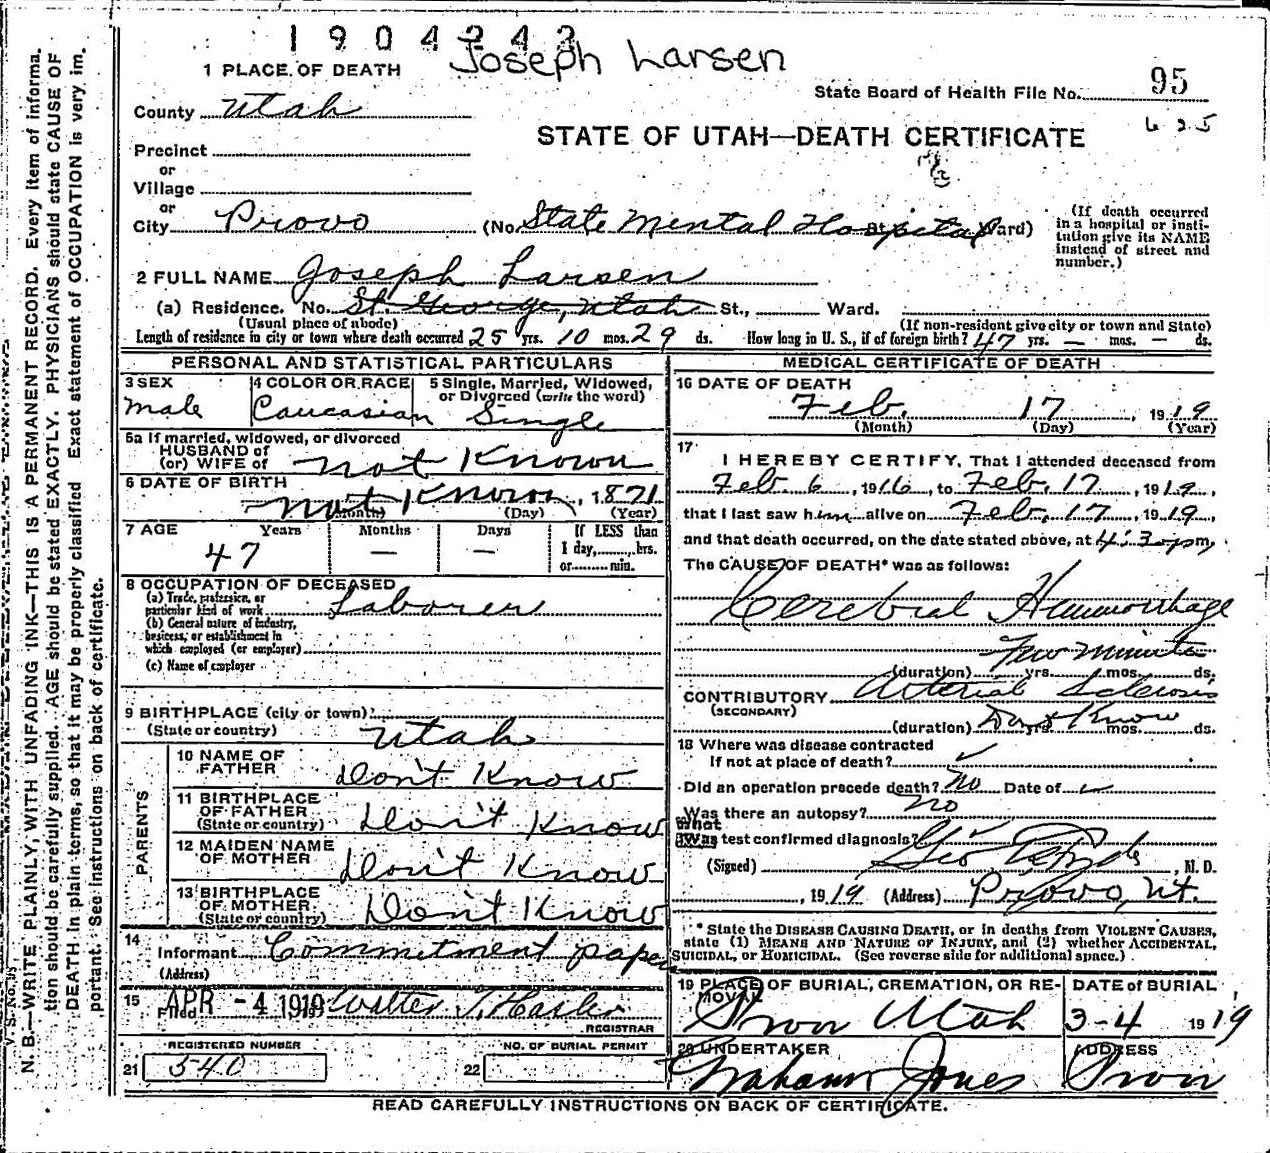 1904242
Joseph Larsen
1 PLACE OF DEATH
State Board of Health File No. 95
County Utah
625
STATE OF UTAH—DEATH CERTIFICATE
Precinct
or
Village
or
City Provo (No. State Mental Hospital St. Ward)
(If death occurred in a hospital or institution give its NAME instead of street and number.)
2 FULL NAME Joseph Larsen
(a) Residence. No. St. George, Utah St., Ward.
(Usual place of abode) (If non-resident give city or town and State)
Length of residence in city or town where death occurred 25 yrs. 10 mos. 29 ds. How long in U. S., if of foreign birth? 47 yrs. — mos. — ds.
PERSONAL AND STATISTICAL PARTICULARS
3 SEX
Male
4 COLOR OR RACE
Caucasian
5 Single, Married, Widowed, or Divorced (write the word)
Single
5a If married, widowed, or divorced
HUSBAND of
(or) WIFE of not Known
6 DATE OF BIRTH
not Known, 1871
(Month) (Day) (Year)
7 AGE Years Months Days If LESS than
47 — — 1 day, hrs.
or min.
8 OCCUPATION OF DECEASED
(a) Trade, profession, or
particular kind of work Laborer
(b) General nature of industry,
business, or establishment in
which employed (or employer)
(c) Name of employer
9 BIRTHPLACE (city or town)
(State or country) Utah
PARENTS
10 NAME OF
FATHER Don't Know
11 BIRTHPLACE
OF FATHER
(State or country) Don't Know
12 MAIDEN NAME
OF MOTHER Don't Know
13 BIRTHPLACE
OF MOTHER
(State or country) Don't Know
14
Informant Commitment paper
(Address)
15 Filed APR -4 1919 Walter T. Hasler
REGISTRAR
REGISTERED NUMBER NO. OF BURIAL PERMIT
21 540 22
MEDICAL CERTIFICATE OF DEATH
16 DATE OF DEATH
Feb. 17, 1919
(Month) (Day) (Year)
17
I HEREBY CERTIFY, That I attended deceased from
Feb 6, 1916, to Feb. 17, 1919,
that I last saw him alive on Feb. 17, 1919,
and that death occurred, on the date stated above, at 4:30 pm.
The CAUSE OF DEATH* was as follows:
Cerebral Hemmorrhage
Few minutes
(duration) yrs. mos. ds.
CONTRIBUTORY Arterial Sclerosis
(SECONDARY)
(duration) Dont Know yrs. mos. ds.
18 Where was disease contracted
If not at place of death?
Did an operation precede death? No Date of
Was there an autopsy? no
What
Was test confirmed diagnosis?
(Signed) Geo , M. D.
, 1919 (Address) Provo, Ut.
* State the DISEASE CAUSING DEATH, or in deaths from VIOLENT CAUSES,
state (1) MEANS AND NATURE OF INJURY, and (2) whether ACCIDENTAL,
SUICIDAL, or HOMICIDAL. (See reverse side for additional space.)
19 PLACE OF BURIAL, CREMATION, OR RE-
MOVAL
Provo Utah
DATE of BURIAL
3-4 1919
20 UNDERTAKER
Graham Jones
ADDRESS
Provo
READ CAREFULLY INSTRUCTIONS ON BACK OF CERTIFICATE.
N. B.—WRITE PLAINLY, WITH UNFADING INK—THIS IS A PERMANENT RECORD. Every item of informa-
tion should be carefully supplied. AGE should be stated EXACTLY. PHYSICIANS should state CAUSE OF
DEATH in plain terms, so that it may be properly classified. Exact statement of OCCUPATION is very im-
portant. See instructions on back of certificate.